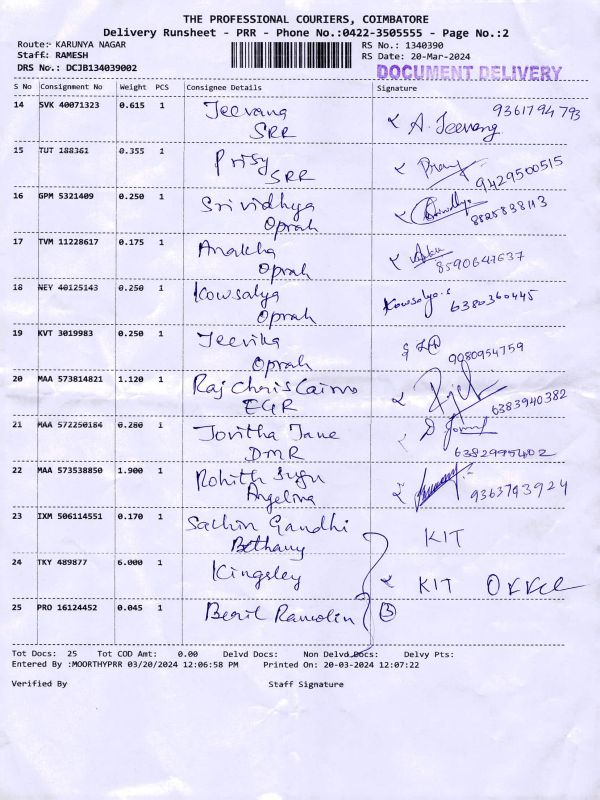 THE PROFESSIONAL COURIERS, COIMBATORE
Delivery Runsheet - PRR - Phone No.:0422-3505555 - Page No.:2
Route:- KARUNYA NAGAR RS No.: 1340390
Staff: RAMESH RS Date: 20-Mar-2024
DRS No.: DCJB134039002 DOCUMENT DELIVERY
S No Consignment No Weight PCS Consignee Details Signature
14 SVK 40071323 0.615 1 Jeevana 9361794793
SRR A. Jeevang
15 TUT 188361 0.355 1 Prisy
SRR 9429500515
16 GPM 5321409 0.250 1 Srividhya
Oprah 8525838113
17 TVM 11228617 0.175 1 Anakha
Oprah 8590647637
18 NEY 40125143 0.250 1 Kowsalya Kowsalya.s 6380360445
Oprah
19 KVT 3019983 0.250 1 Jeevika
Oprah 9080954759
20 MAA 573814821 1.120 1 Raj Chris Cairno
EGR 6383940382
21 MAA 572250184 0.280 1 Jovitha Jane
DMR 6382995402
22 MAA 573538850 1.900 1 Rohith
Angelina 9363793924
23 IXM 506114551 0.170 1 Sachin Gandhi KIT
Bethany
24 TKY 489877 6.000 1 Kingsley KIT
25 PRO 16124452 0.045 1 Beril Ramolin 3
Tot Docs: 25 Tot COD Amt: 0.00 Delvd Docs: Non Delvd Docs: Delvy Pts:
Entered By :MOORTHYPRR 03/20/2024 12:06:58 PM Printed On: 20-03-2024 12:07:22
Verified By Staff Signature